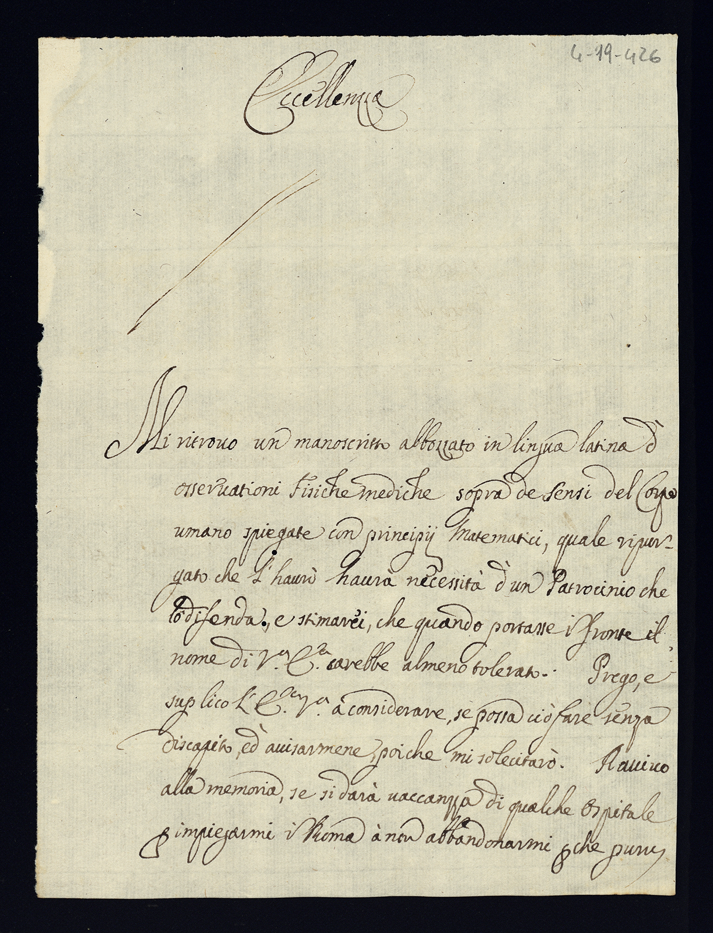 4-19-426
Eccellenza
Mi ritrovo un manoscritto abbozzato in lingua latina d'
osservationi Fisiche mediche sopra de sensi del Corpo
umano spiegate con principij Matematici, quale ripur-
gato che l'haurò haurà necessità d'un Patrocinio che
lo difenda, e stimarei, che quando portasse ī fronte il
nome di Vra Ecza sarebbe almeno tolerato. Prego, e
suplico l'Ecza Vra à considerare, se possa ciò fare senza
discapito, ed avisarmene, poiche mi solecitarò. Ravivo
alla memoria, se si darà vaccanza di qualche Ospitale
p impiegarmi ī Roma à non abbandonarmi p che